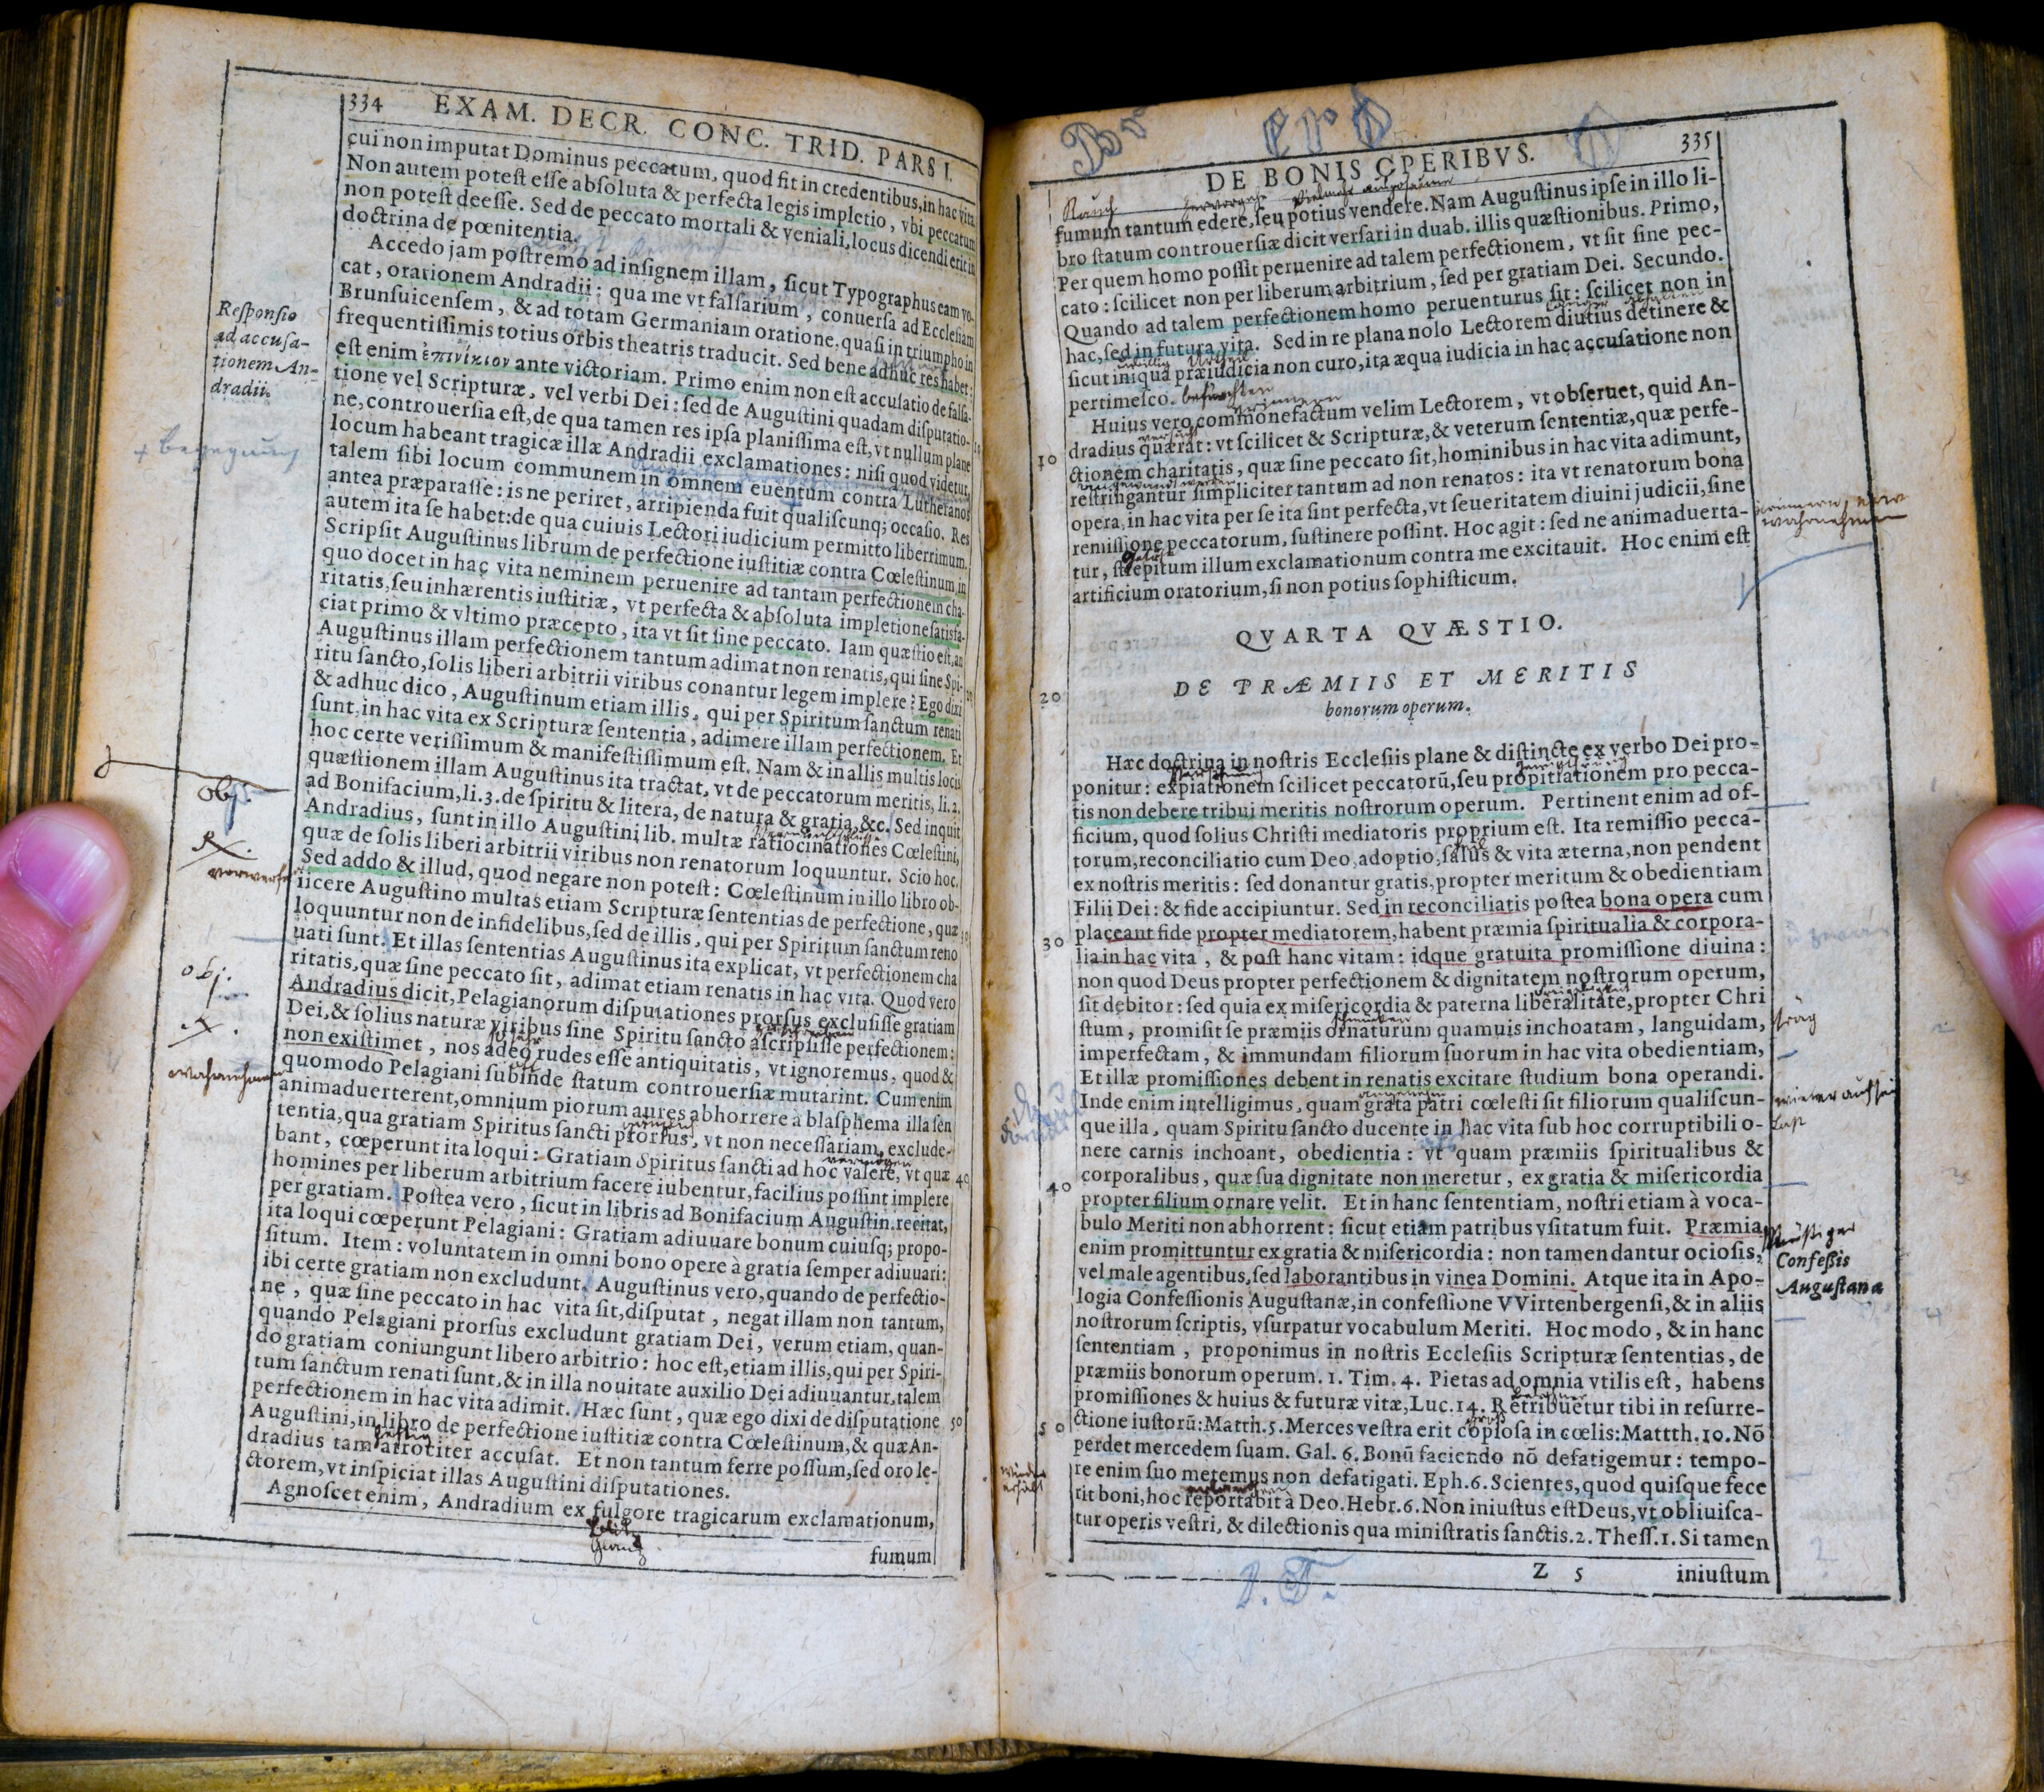 334 EXAM. DECR. CONC. TRID. PARS I.
cui non imputat Dominus peccatum, quod fit in credentibus, in hac vita.
Non autem potest esse absoluta & perfecta legis impletio, vbi peccatum
non potest deesse. Sed de peccato mortali & veniali, locus dicendi erit in
doctrina de pœnitentia.
Accedo jam postremo ad insignem illam, sicut Typographus eam vo-
cat, orationem Andradii: qua me vt falsarium, conuersa ad Ecclesiam
Brunsuicensem, & ad totam Germaniam oratione, quasi in triumpho in
frequentissimis totius orbis theatris traducit. Sed bene adhuc res habet:
est enim ἐπινίκιον ante victoriam. Primo enim non est accusatio de falsa-
tione vel Scripturæ, vel verbi Dei: sed de Augustini quadam disputatio-
ne, controuersia est, de qua tamen res ipsa planissima est, vt nullum plane
locum habeant tragicæ illæ Andradii exclamationes: nisi quod videtur,
talem sibi locum communem in omnem euentum contra Lutheranos
antea præparasse: is ne periret, arripienda fuit qualiscunq; occasio. Res
autem ita se habet: de qua cuiuis Lectori iudicium permitto liberrimum.
Scripsit Augustinus librum de perfectione iustitiæ contra Cœlestinum, in
quo docet in hac vita neminem peruenire ad tantam perfectionem cha-
ritatis, seu inhærentis iustitiæ, vt perfecta & absoluta impletione satisfa-
ciat primo & vltimo præcepto, ita vt sit sine peccato. Iam quæstio est, an
Augustinus illam perfectionem tantum adimat non renatis, qui sine Spi-
ritu sancto, solis liberi arbitrii viribus conantur legem implere? Ego dixi
& adhuc dico, Augustinum etiam illis, qui per Spiritum sanctum renati
sunt, in hac vita ex Scripturæ sententia, adimere illam perfectionem. Et
hoc certe verissimum & manifestissimum est. Nam & in allis multis locis
quæstionem illam Augustinus ita tractat, vt de peccatorum meritis, li. 2.
ad Bonifacium, li. 3. de spiritu & litera, de natura & gratia, &c. Sed inquit
Andradius, sunt in illo Augustini lib. multæ ratiocinationes Cœlestini,
quæ de solis liberi arbitrii viribus non renatorum loquuntur. Scio hoc.
Sed addo & illud, quod negare non potest: Cœlestinum in illo libro ob-
iicere Augustino multas etiam Scripturæ sententias de perfectione, quæ
loquuntur non de infidelibus, sed de illis, qui per Spiritum sanctum reno
uati sunt. Et illas sententias Augustinus ita explicat, vt perfectionem cha
ritatis, quæ sine peccato sit, adimat etiam renatis in hac vita. Quod vero
Andradius dicit, Pelagianorum disputationes prorsus exclusisse gratiam
Dei, & solius naturæ viribus sine Spiritu sancto ascripsisse perfectionem:
non existimet, nos adeo rudes esse antiquitatis, vt ignoremus, quod &
quomodo Pelagiani subinde statum controuersiæ mutarint. Cum enim
animaduerterent, omnium piorum aures abhorrere à blasphema illa sen
tentia, qua gratiam Spiritus sancti prorsus, vt non necessariam, exclude-
bant, cœperunt ita loqui: Gratiam Spiritus sancti ad hoc valere, vt quæ
homines per liberum arbitrium facere iubentur, facilius possint implere
per gratiam. Postea vero, sicut in libris ad Bonifacium Augustin. recitat,
ita loqui cœperunt Pelagiani: Gratiam adiuuare bonum cuiusq; propo-
situm. Item: voluntatem in omni bono opere à gratia semper adiuuari:
ibi certe gratiam non excludunt. Augustinus vero, quando de perfectio-
ne, quæ sine peccato in hac vita sit, disputat, negat illam non tantum,
quando Pelagiani prorsus excludunt gratiam Dei, verum etiam, quan-
do gratiam coniungunt libero arbitrio: hoc est, etiam illis, qui per Spiri-
tum sanctum renati sunt, & in illa nouitate auxilio Dei adiuuantur, talem
perfectionem in hac vita adimit. Hæc sunt, quæ ego dixi de disputatione
Augustini, in libro de perfectione iustitiæ contra Cœlestinum, & quæ An-
dradius tam atrociter accusat. Et non tantum ferre possum, sed oro le-
ctorem, vt inspiciat illas Augustini disputationes.
Agnoscet enim, Andradium ex fulgore tragicarum exclamationum,
fumum
Responsio
ad accusa-
tionem An-
dradii.
obj.
obj.
10
20
30
40
50
DE BONIS OPERIBVS. 335
fumum tantum edere, seu potius vendere. Nam Augustinus ipse in illo li-
bro statum controuersiæ dicit versari in duab. illis quæstionibus. Primo,
Per quem homo possit peruenire ad talem perfectionem, vt sit sine pec-
cato: scilicet non per liberum arbitrium, sed per gratiam Dei. Secundo.
Quando ad talem perfectionem homo peruenturus sit: scilicet non in
hac, sed in futura vita. Sed in re plana nolo Lectorem diutius detinere &
sicut iniqua præiudicia non curo, ita æqua iudicia in hac accusatione non
pertimesco.
Huius vero commonefactum velim Lectorem, vt obseruet, quid An-
dradius quærat: vt scilicet & Scripturæ, & veterum sententiæ, quæ perfe-
ctionem charitatis, quæ sine peccato sit, hominibus in hac vita adimunt,
restringantur simpliciter tantum ad non renatos: ita vt renatorum bona
opera, in hac vita per se ita sint perfecta, vt seueritatem diuini judicii, sine
remissione peccatorum, sustinere possint. Hoc agit: sed ne animaduerta-
tur, strepitum illum exclamationum contra me excitauit. Hoc enim est
artificium oratorium, si non potius sophisticum.
QVARTA QVÆSTIO.
DE PRÆMIIS ET MERITIS
bonorum operum.
Hæc doctrina in nostris Ecclesiis plane & distincte ex verbo Dei pro-
ponitur: expiationem scilicet peccatorũ, seu propitiationem pro pecca-
tis non debere tribui meritis nostrorum operum. Pertinent enim ad of-
ficium, quod solius Christi mediatoris proprium est. Ita remissio pecca-
torum, reconciliatio cum Deo, adoptio, salus & vita æterna, non pendent
ex nostris meritis: sed donantur gratis, propter meritum & obedientiam
Filii Dei: & fide accipiuntur. Sed in reconciliatis postea bona opera cum
placeant fide propter mediatorem, habent præmia spiritualia & corpora-
lia in hac vita, & post hanc vitam: idque gratuita promissione diuina:
non quod Deus propter perfectionem & dignitatem nostrorum operum,
sit debitor: sed quia ex misericordia & paterna liberalitate, propter Chri
stum, promisit se præmiis ornaturum quamuis inchoatam, languidam,
imperfectam, & immundam filiorum suorum in hac vita obedientiam,
Et illæ promissiones debent in renatis excitare studium bona operandi.
Inde enim intelligimus, quam grata patri cœlesti sit filiorum qualiscun-
que illa, quam Spiritu sancto ducente in hac vita sub hoc corruptibili o-
nere carnis inchoant, obedientia: vt quam præmiis spiritualibus &
corporalibus, quæ sua dignitate non meretur, ex gratia & misericordia
propter filium ornare velit. Et in hanc sententiam, nostri etiam à voca-
bulo Meriti non abhorrent: sicut etiam patribus vsitatum fuit. Præmia
enim promittuntur ex gratia & misericordia: non tamen dantur ociosis,
vel male agentibus, sed laborantibus in vinea Domini. Atque ita in Apo-
logia Confessionis Augustanæ, in confessione VVirtenbergensi, & in aliis
nostrorum scriptis, vsurpatur vocabulum Meriti. Hoc modo, & in hanc
sententiam, proponimus in nostris Ecclesiis Scripturæ sententias, de
præmiis bonorum operum. 1. Tim. 4. Pietas ad omnia vtilis est, habens
promissiones & huius & futuræ vitæ, Luc. 14. Retribuetur tibi in resurre-
ctione iustorũ: Matth. 5. Merces vestra erit copiosa in cœlis: Mattth. 10. Nõ
perdet mercedem suam. Gal. 6. Bonũ faciendo nõ defatigemur: tempo-
re enim suo metemus non defatigati. Eph. 6. Scientes, quod quisque fece
rit boni, hoc reportabit à Deo. Hebr. 6. Non iniustus est Deus, vt obliuisca-
tur operis vestri, & dilectionis qua ministratis sanctis. 2. Thess. 1. Si tamen
Z 5 iniustum
10
20
30
40
50
Confessis
Augustana